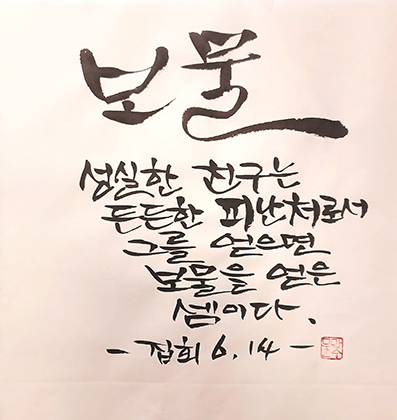 보물
성실한 친구는
든든한 피난처로서
그를 얻으면
보물을 얻은
셈이다.
- 집회 6, 14 -